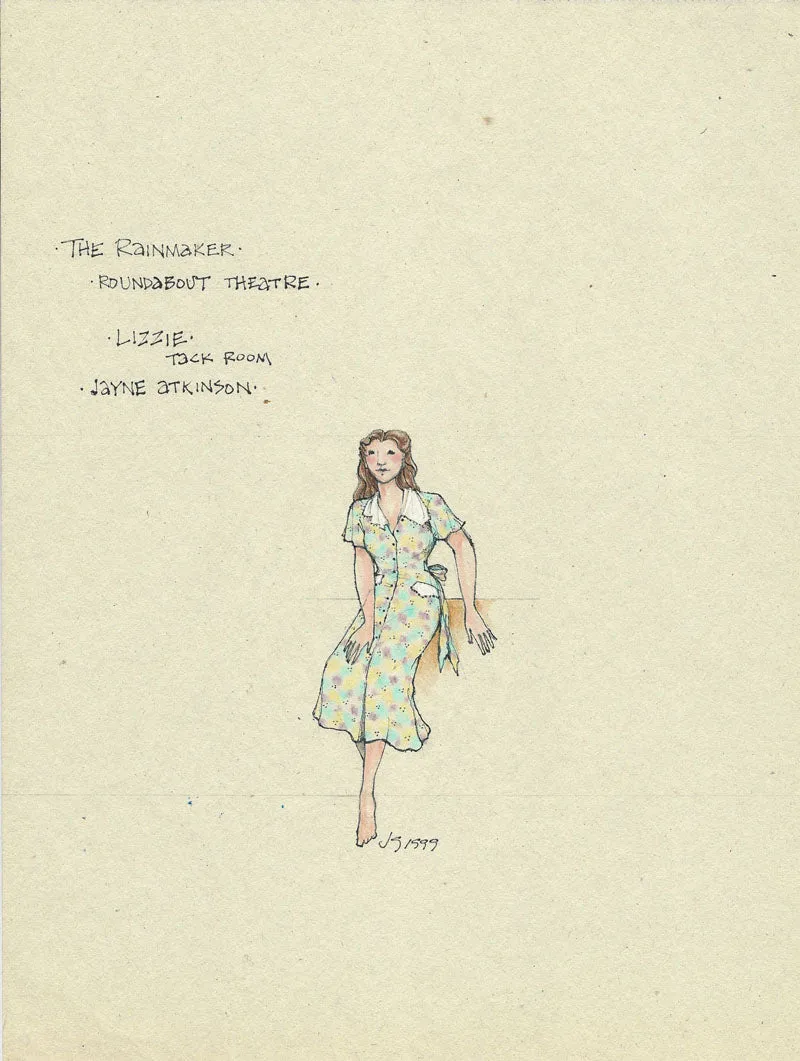 ·THE RAINMAKER·
·ROUNDABOUT THEATRE·
·LIZZIE·
TACK ROOM
·JAYNE ATKINSON·
JG 1999